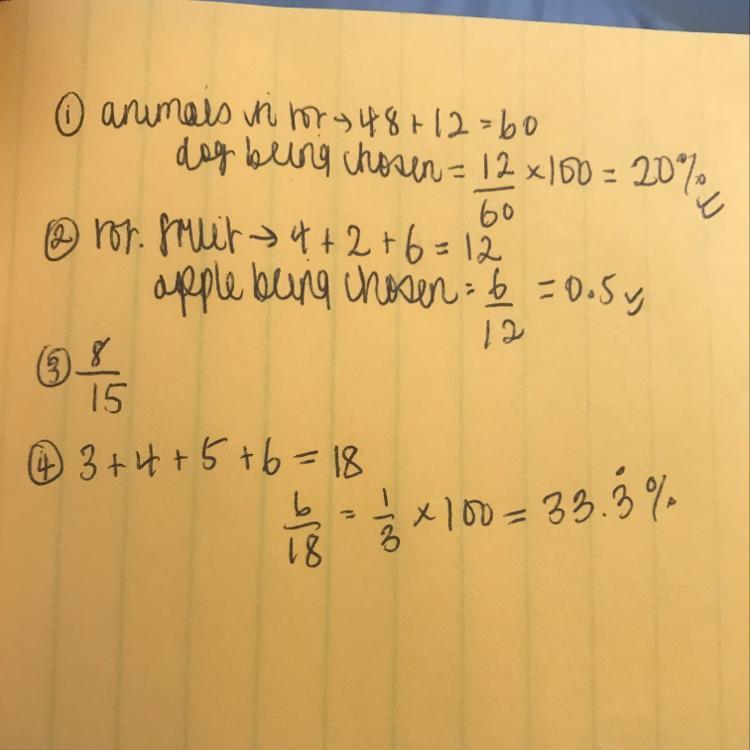 ① animals in tot → 48 + 12 = 60
dog being chosen = 12/60 × 100 = 20%
② tot. fruit → 4 + 2 + 6 = 12
apple being chosen = 6/12 = 0.5
③ 8/15
④ 3 + 4 + 5 + 6 = 18
6/18 = 1/3 × 100 = 33.3̇%